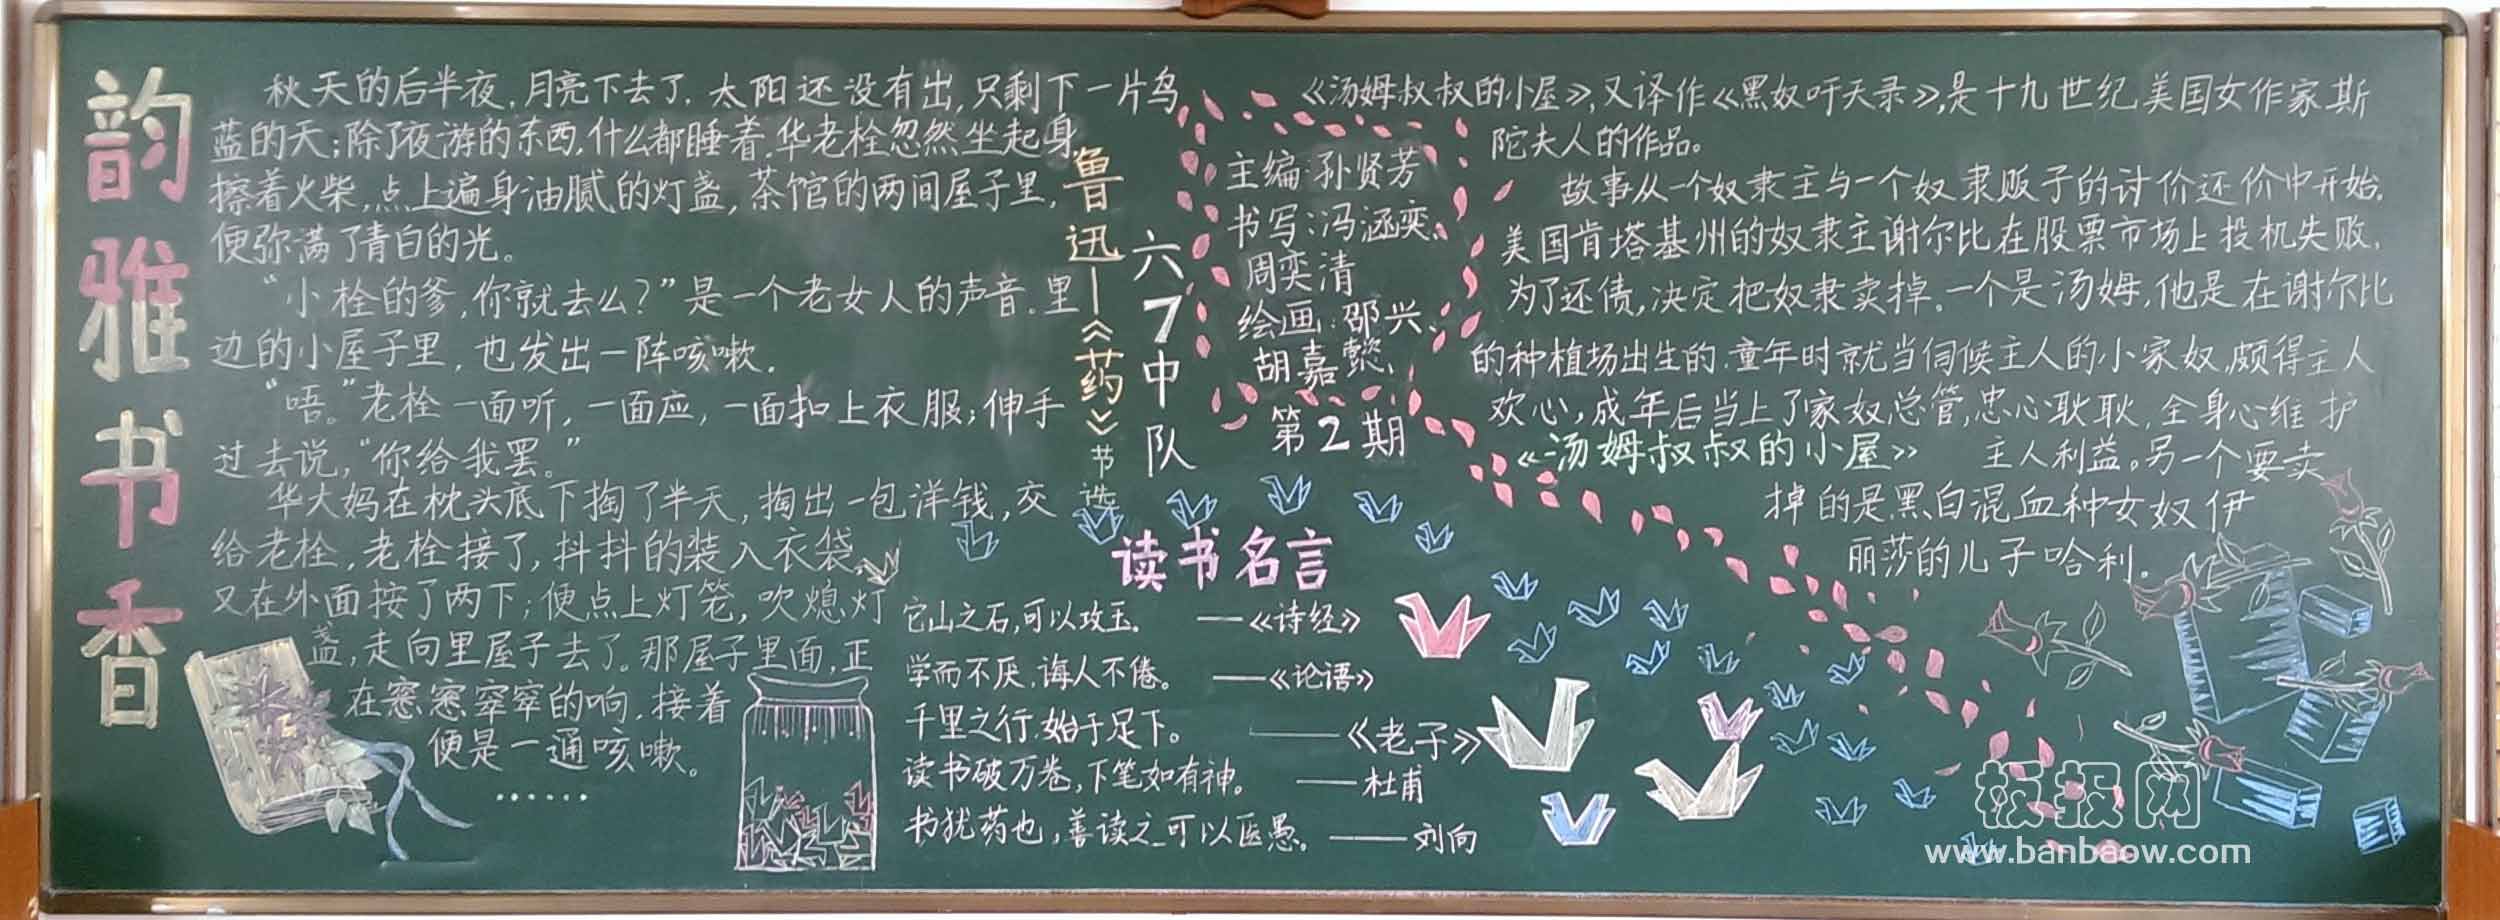 韵雅书香
秋天的后半夜,月亮下去了,太阳还没有出,只剩下一片乌
蓝的天;除了夜游的东西,什么都睡着.华老栓忽然坐起身,
擦着火柴,点上遍身油腻的灯盏,茶馆的两间屋子里,
便弥满了青白的光。
“小栓的爹,你就去么?”是一个老女人的声音.里
边的小屋子里,也发出一阵咳嗽.
“唔。”老栓一面听,一面应,一面扣上衣服;伸手
过去说,“你给我罢。”
华大妈在枕头底下掏了半天,掏出一包洋钱,交
给老栓,老栓接了,抖抖的装入衣袋,
又在外面按了两下;便点上灯笼,吹熄灯
盏,走向里屋子去了。那屋子里面,正
在窸窸窣窣的响,接着
便是一通咳嗽。
……
鲁迅—《药》节选
六7中队
主编:孙贤芳
书写:冯涵奕、
周奕清
绘画:邵兴、
胡嘉懿、
第2期
读书名言
它山之石,可以攻玉. ——《诗经》
学而不厌,诲人不倦。 ——《论语》
千里之行,始于足下。 ——《老子》
读书破万卷,下笔如有神。 ——杜甫
书犹药也,善读之可以医愚。 ——刘向
《汤姆叔叔的小屋》,又译作《黑奴吁天录》,是十九世纪美国女作家斯
陀夫人的作品。
故事从一个奴隶主与一个奴隶贩子的讨价还价中开始.
美国肯塔基州的奴隶主谢尔比在股票市场上投机失败,
为了还债,决定把奴隶卖掉.一个是汤姆,他是在谢尔比
的种植场出生的.童年时就当伺候主人的小家奴,颇得主人
欢心,成年后当上了家奴总管,忠心耿耿,全身心维护
《汤姆叔叔的小屋》 主人利益。另一个要卖
掉的是黑白混血种女奴伊
丽莎的儿子哈利.
板报网
www.banbaow.com